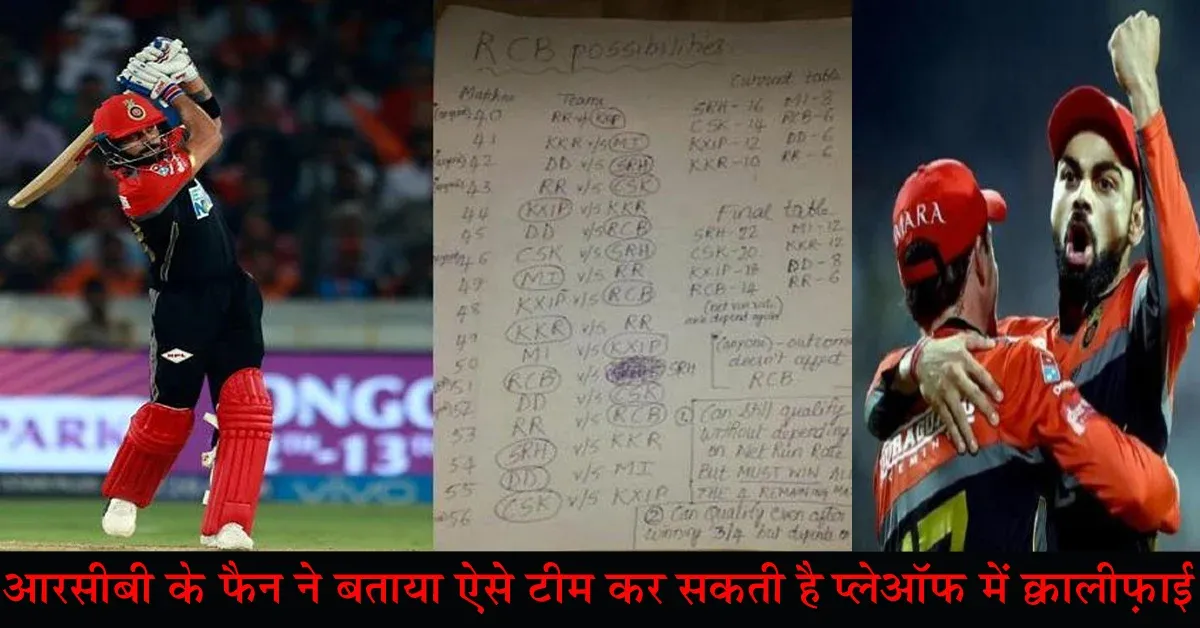 RCB possibilities
Matches Teams
40 RR v/s KXIP
41 KKR v/s MI
42 DD v/s SRH
43 RR v/s CSK
44 KXIP v/s KKR
45 DD v/s RCB
46 CSK v/s SRH
47 MI v/s RR
48 KXIP v/s RCB
49 KKR v/s RR
50 MI v/s KXIP
51 RCB v/s SRH
52 DD v/s CSK
53 RR v/s RCB
54 SRH v/s KKR
55 DD v/s MI
56 CSK v/s KXIP
Current table
SRH-16 MI-8
CSK-14 RCB-6
KXIP-12 DD-6
KKR-10 RR-6
Final table
SRH-22 MI-12
CSK-20 KKR-12
KXIP-18 DD-8
RCB-14 RR-6
(anyone) - outcome
doesn't affect
RCB.
1. Can still qualify
without depending
on Net Run Rate
But MUST WIN ALL
THE 4 REMAINING MA
2 Can Qualify even after
winning 3/4 but depends on
PARK
ONGC
-13
vivo
MARA
आरसीबी के फैन ने बताया ऐसे टीम कर सकती है प्लेऑफ में क्वालीफ़ाई